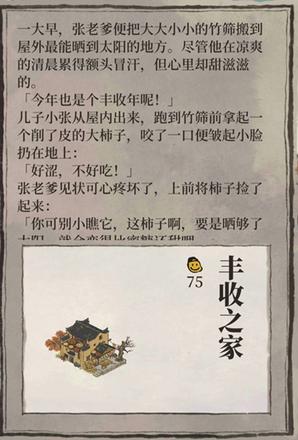 一大早，张老爹便把大大小小的竹筛搬到
屋外最能晒到太阳的地方。尽管他在凉爽
的清晨累得额头冒汗，但心里却甜滋滋
的。
「今年也是个丰收年呢！」
儿子小张从屋内出来，跑到竹筛前拿起一
个削了皮的大柿子，咬了一口便皱起小脸
扔在地上：
「好涩，不好吃！」
张老爹见状可心疼坏了，上前将柿子捡了
起来：
「你可别小瞧它，这柿子啊，要是晒够了
太阳，就会变得比蜜糖还甜哩
75
丰收之家